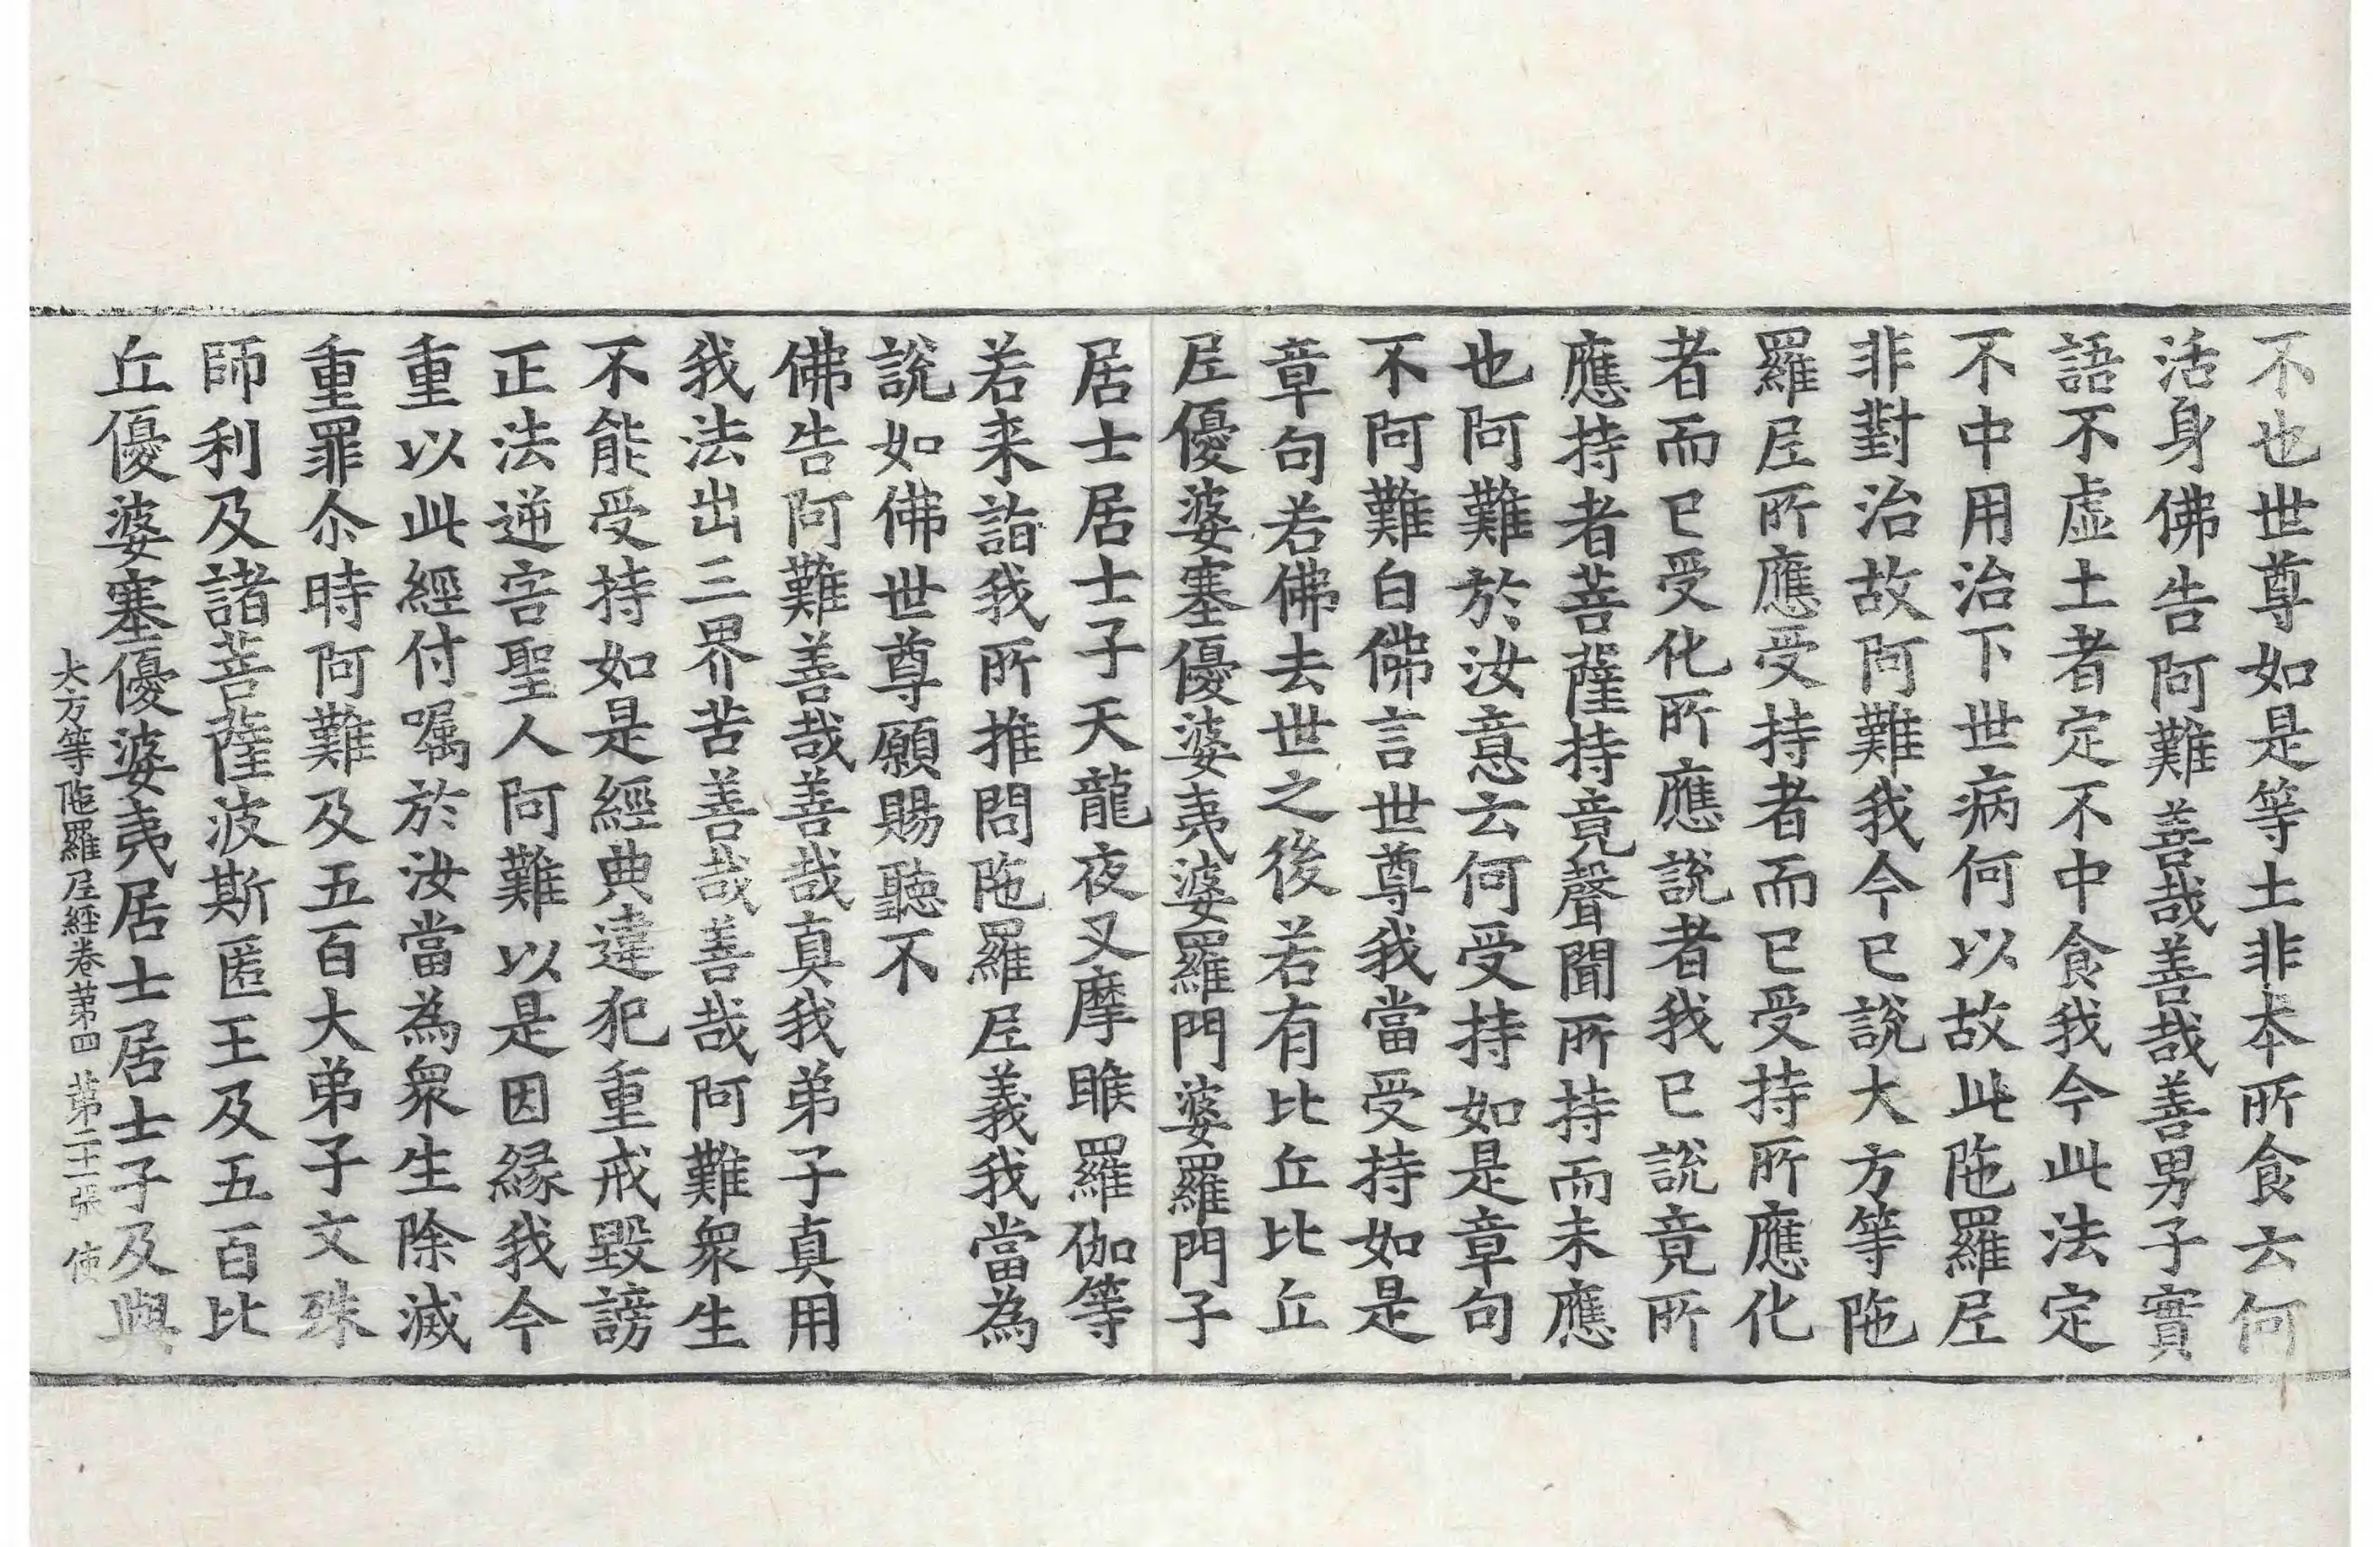 不也世尊如是等土非本所食云何
活身佛告阿難善哉善哉善男子實
語不虛土者定不中食我今此法定
不中用治下世病何以故此陁羅𡰱
非對治故阿難我今已說大方等陁
羅𡰱所應受持者而已受持所應化
者而已受化所應說者我已說竟所
應持者菩薩持竟聲聞所持而未應
也阿難於汝意云何受持如是章句
不阿難白佛言世尊我當受持如是
章句若佛去世之後若有比丘比丘
𡰱優婆塞優婆夷婆羅門婆羅門子
居士居士子天龍夜叉摩睺羅伽等
若来詣我所推問陁羅𡰱義我當為
說如佛世尊願賜聽不
佛告阿難善哉善哉真我弟子真用
我法出三界苦善哉善哉阿難衆生
不能受持如是經典違犯重戒毀謗
正法逆害聖人阿難以是因緣我今
重以此經付囑於汝當為衆生除滅
重罪尒時阿難及五百大弟子文殊
師利及諸菩薩波斯匿王及五百比
丘優婆塞優婆夷居士居士子及與
大方等陁羅𡰱經卷第四 第二十二張 使